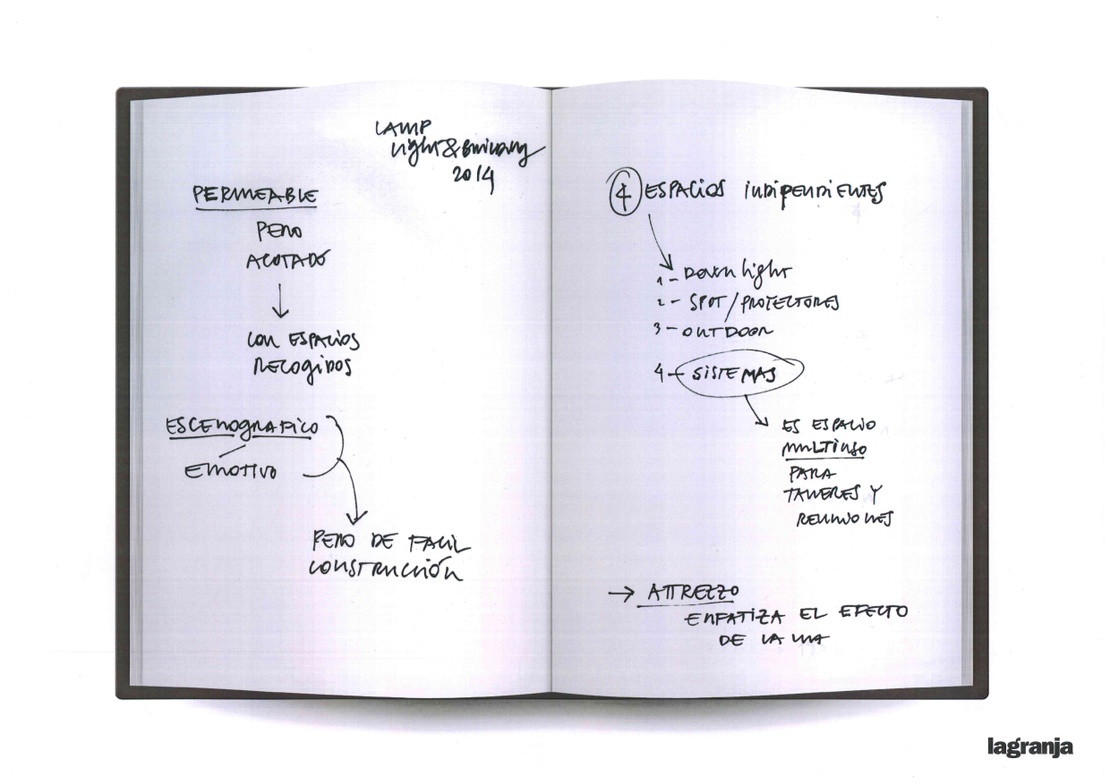 LAMP
Light & Building
2014
PERMEABLE
PERO
ACOTADO
CON ESPACIOS
RECOGIDOS
ESCENOGRAFICO
EMOTIVO
PERO DE FACIL
CONSTRUCCIÓN
4 ESPACIOS INDIPENDIENTES
1 - Down light
2 - SPOT / PROYECTORES
3 - OUTDOOR
4 - SISTEMAS
ES ESPACIO
MULTIUSO
PARA
TALLERES Y
REUNIONES
→ ATTREZZO
ENFATIZA EL EFECTO
DE LA LUZ
lagranja